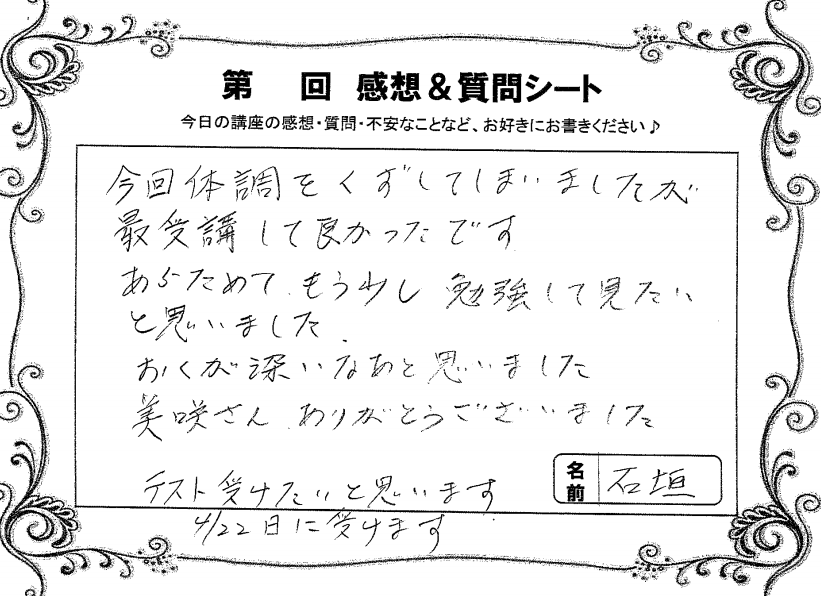 第　回 感想＆質問シート
今日の講座の感想・質問・不安なことなど、お好きにお書きください♪
今回体調をくずしてしまいましたが
最受講して良かったです
あらためて、もう少し 勉強して見たい
と思いました、
おくが深いなあと思いました
美咲さん ありがとうございました
テスト受けたいと思います
4/22日に受けます
名前 石垣